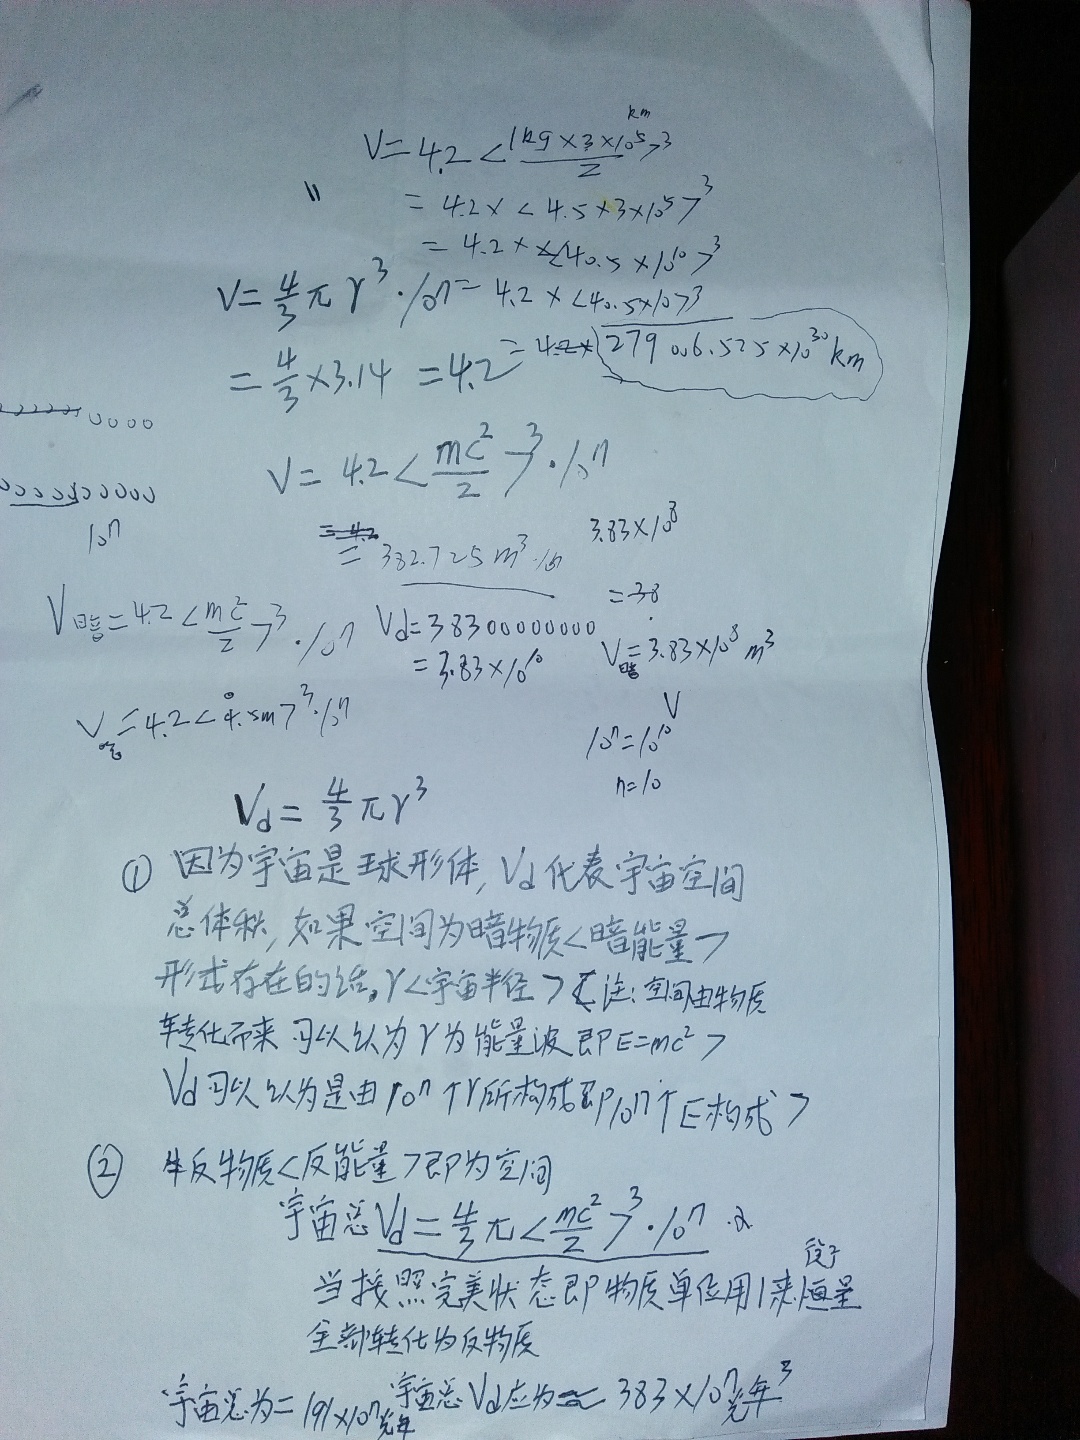 km
V=4.2<1kg×3×10⁵>³/2
" =4.2×<4.5×3×10⁵>³
=4.2×<40.5×10¹⁰>³
V=4/3πr³·10ⁿ=4.2×<40.5×10>³
=4/3×3.14=4.2
=279006.525×10³⁰km
0000
V=4.2<mc²/2>³·10ⁿ
10ⁿ
=382.725m³
3.83×10⁸
=38
V暗=4.2<mc²/2>³·10ⁿ
Vd=38300000000
=3.83×10¹⁰
V暗=3.83×10⁸m³
=4.2<4.5m>³·10ⁿ
V
10ⁿ=10¹⁰
n=10
Vd=4/3πr³
① 因为宇宙是球形体,Vd代表宇宙空间
总体积,如果空间为暗物质<暗能量>
形式存在的话,r<宇宙半径><注:空间由物质
转化而来可以认为r为能量波即E=mc²>
Vd可以认为是由10ⁿ个r所构成即10ⁿ个E构成>
② 反物质<反能量>即为空间
宇宙总Vd=4/3π<mc²/2>³·10ⁿ
当按照完美状态即物质单位用1来恒量
全部转化为反物质
宇宙总为=191×10ⁿ光年
宇宙总Vd应为 383×10ⁿ光年³